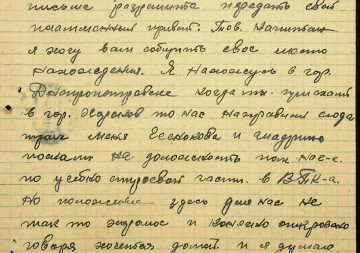 письма разрешите передать свой
пламенный привет. Тов. Капитан
я хочу вам сообщить свое место
нахождения. Я нахожусь в гор.
Днепропетровске когда мы приехали
в гор. Харьков то нас направили сюда
меня Есенкова и
послали на должность пом. нас-к.
по учебно строевой части. в ВТК-а.
Но положение здесь для нас не
так то хорошое и конечно откровенно
говоря хочеться домой и я думаю